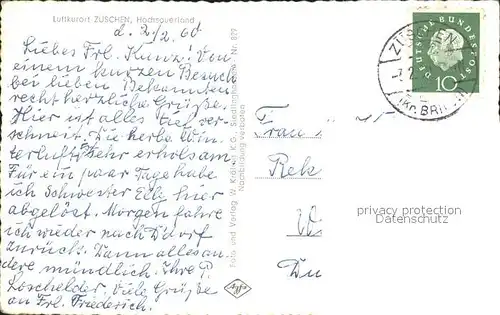 Luftkurort ZÜSCHEN, Hochsauerland
d. 2/2. 60
Liebes Frl. Kunz! Von
einem kurzen Besuch
bei lieben Bekannten
recht herzliche Grüße.
Hier ist alles tief ver-
schneit. Die herbe Win-
terluft ist sehr erholsam.
Für ein paar Tage habe
ich Schwester Elli hier
abgelöst. Morgen fahre
ich wieder nach Ddorf
zurück. Dann alles an-
dere mündlich. Ihre P.
Loschelder. Viele Grüße
an Frl. Friederich.
Foto und Verlag W. K.G., Siedlinghausen Nr. 829
Nachbildung verboten
Agfa
DEUTSCHE BUNDESPOST
10
ZÜSCHEN
(Kr. BRILON)
Frau
Rek
Du
privacy protection
Datenschutz